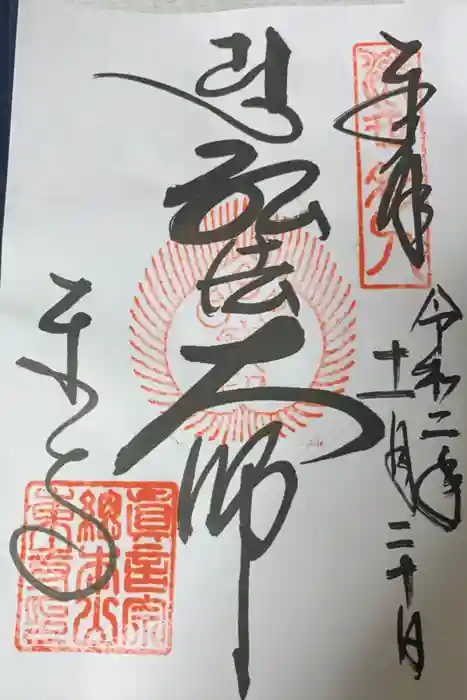 奉拝
令和二年
十一月二十日
弘法大師
東寺
眞言宗
總本山
東寺印